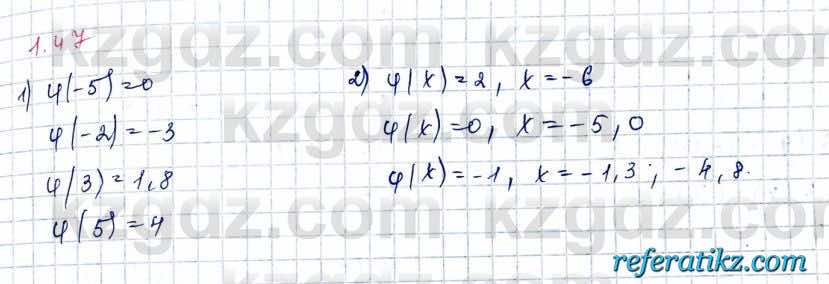 1.47
1) φ(-5)=0
φ(-2)=-3
φ(3)=1,8
φ(5)=4
2) φ(x)=2, x=-6
φ(x)=0, x=-5,0
φ(x)=-1, x=-1,3; -4,8.
kzgdz.com kzgdz.com
kzgdz.com kzgdz.com
kzgdz.com kzgdz.com
referatikz.com